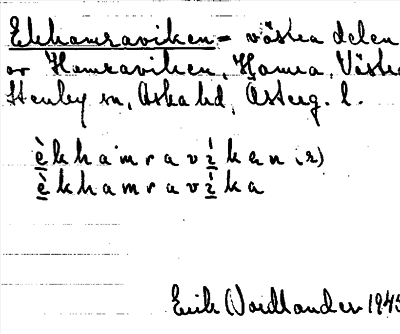 Ekhamraviken = västra delen
av Hamraviken, Hamra, Västra
Stenby sn, Aska hd, Österg. l.
è̱khamravì̱kan (r)
è̱khamravì̱ka
Erik Nordlander 1945